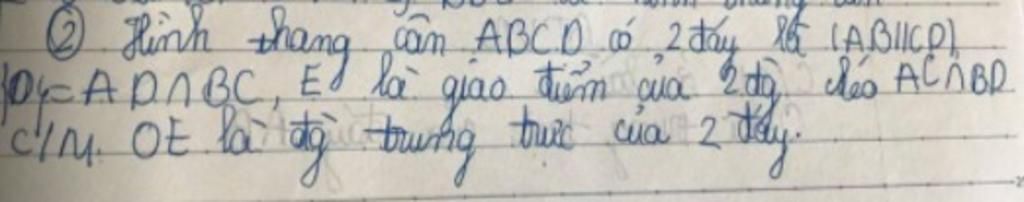 ② Hình thang cân ABCD có 2 đáy (AB//CD)
{O}=AD∩BC, E là giao điểm của 2 đg chéo AC∩BD
C/M. OE là đg trung trực của 2 đáy.